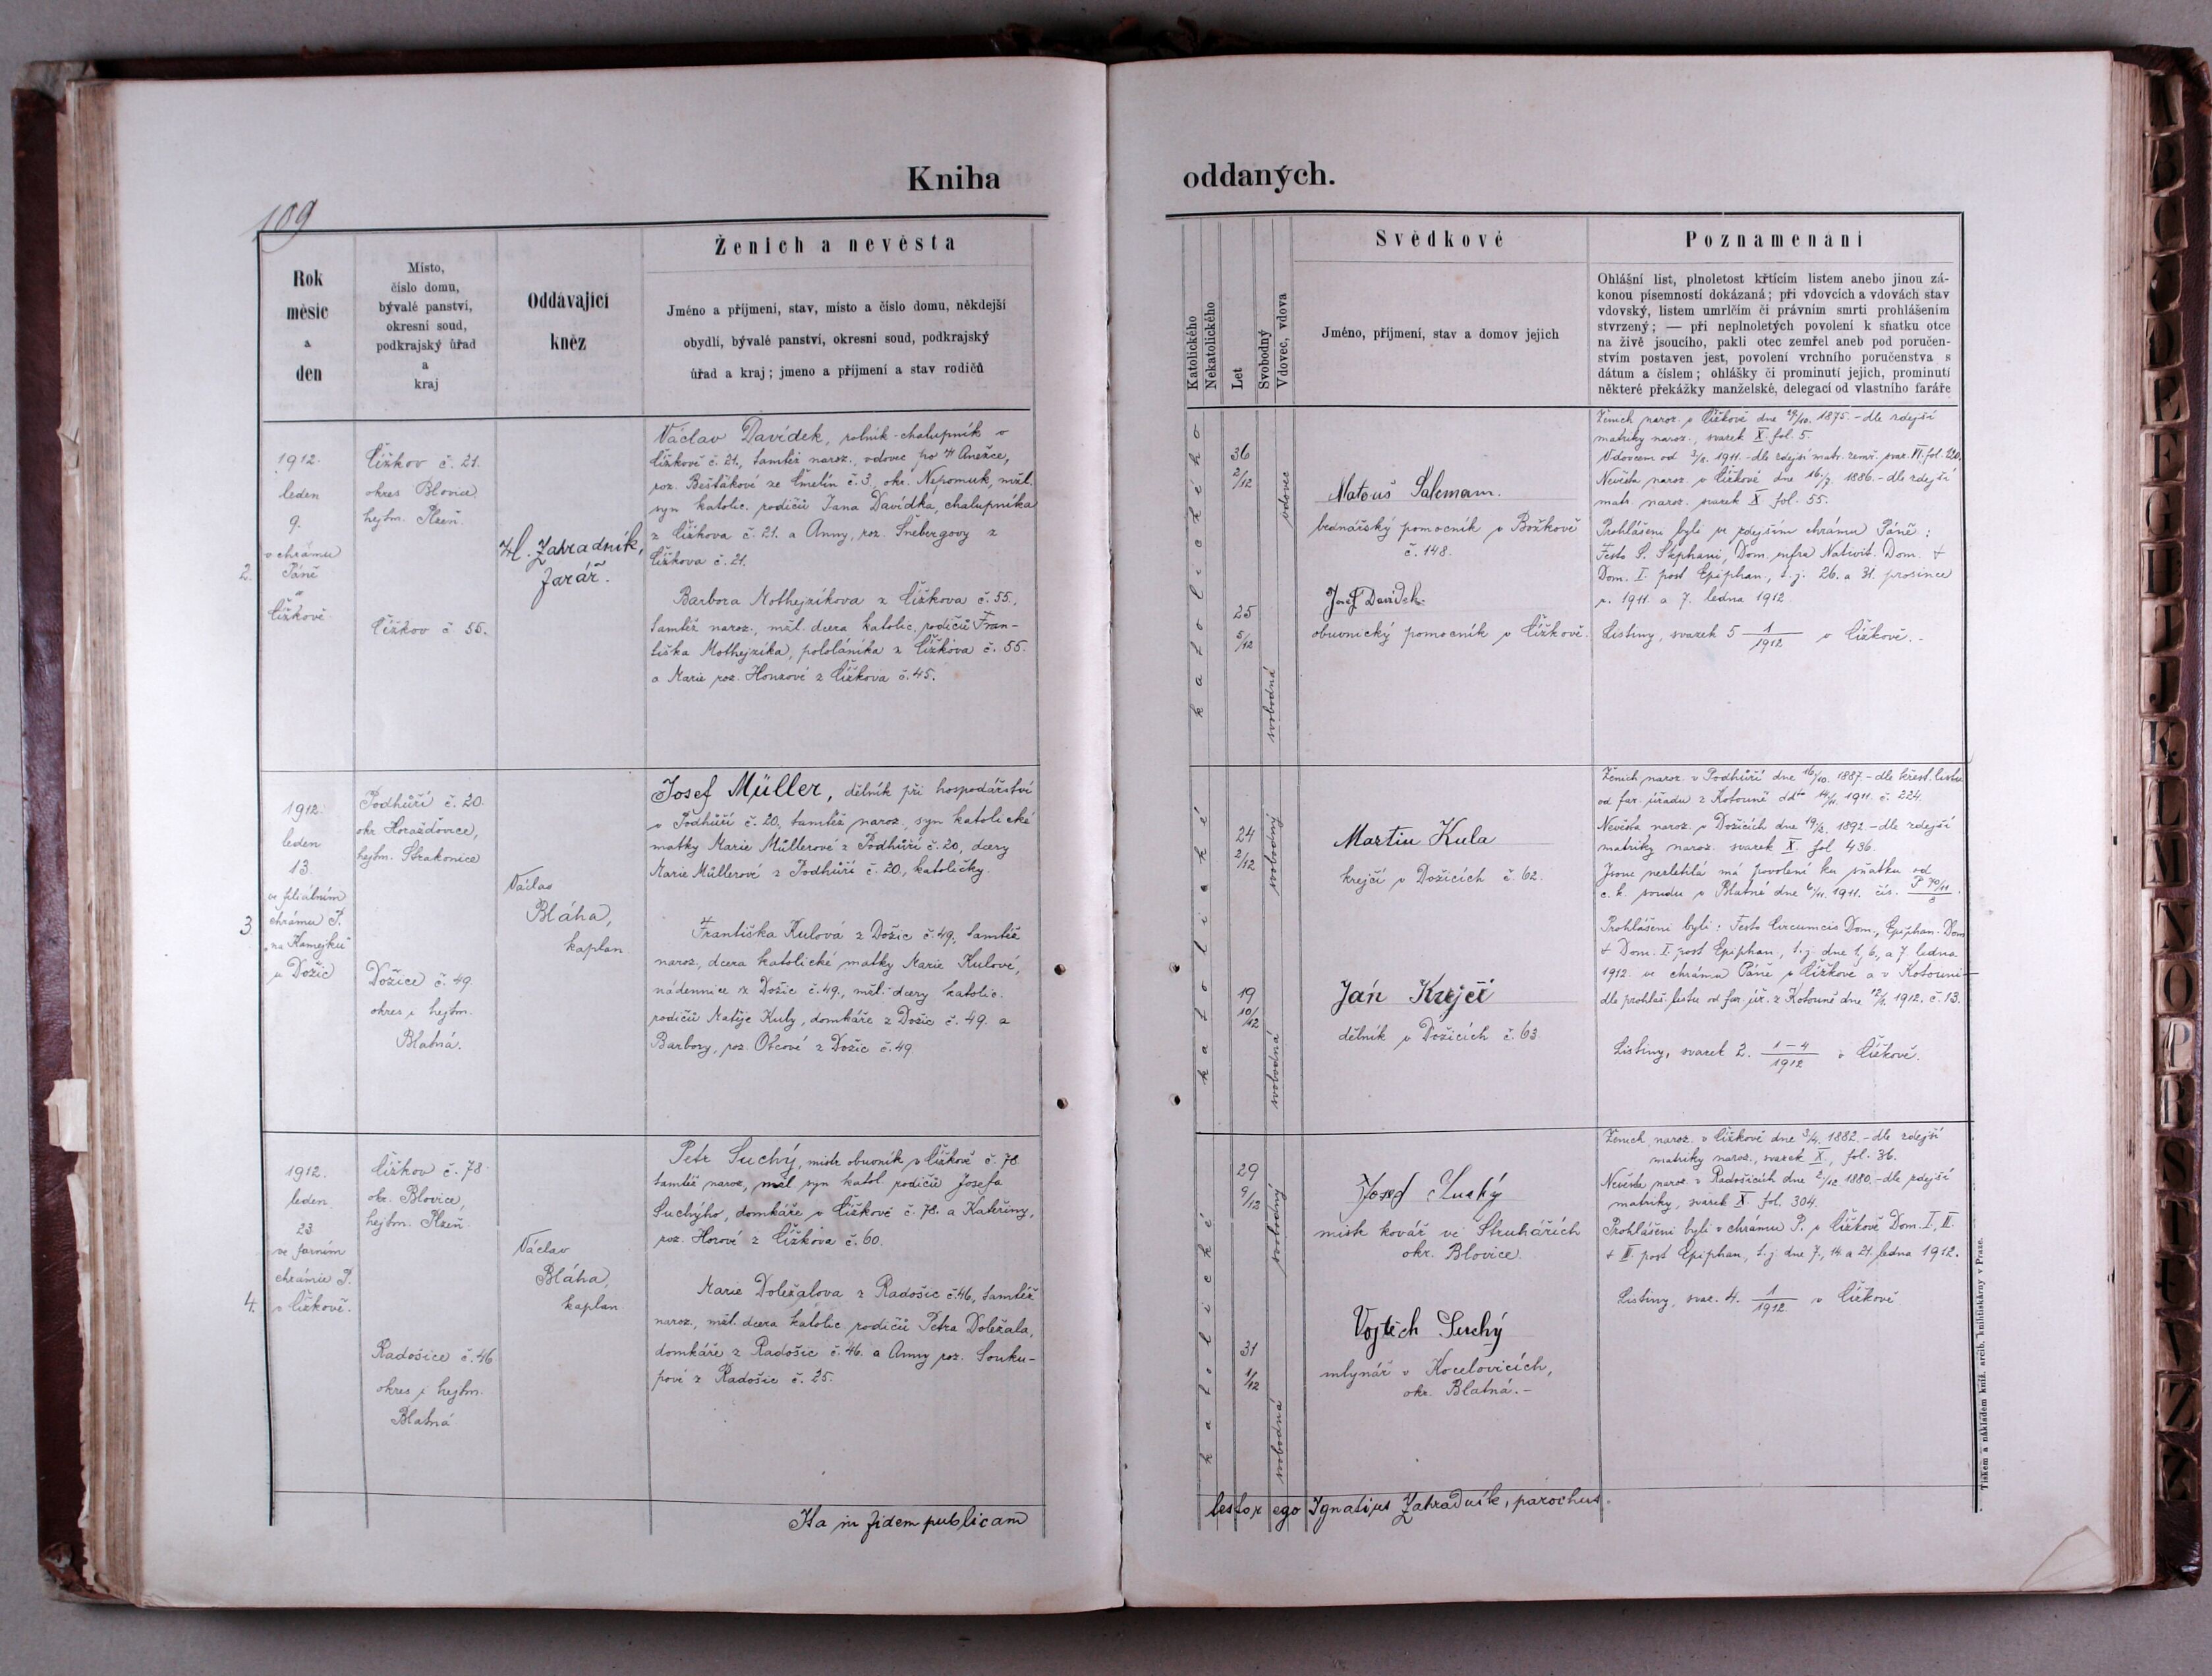 Kniha
oddaných.
109
Rok
měsíc
a
den
Místo,
číslo domu,
bývalé panství,
okresní soud,
podkrajský úřad
a
kraj
Oddávající
kněz
Ženich a nevěsta
Jméno a příjmení, stav, místo a číslo domu, někdejší
obydlí, bývalé panství, okresní soud, podkrajský
úřad a kraj; jmeno a příjmení a stav rodičů
Katolického
Nekatolického
Let
Svobodný
Vdovec, vdova
Svědkové
Jméno, příjmení, stav a domov jejich
Poznamenání
Ohlášní list, plnoletost křtícím listem anebo jinou zá-
konou písemností dokázaná; při vdovcích a vdovách stav
vdovský, listem umrlčím či právním smrti prohlášením
stvrzený; — při neplnoletých povolení k sňatku otce
na živě jsoucího, pakli otec zemřel aneb pod poručen-
stvím postaven jest, povolení vrchního poručenstva s
dátum a číslem; ohlášky či prominutí jejich, prominutí
některé překážky manželské, delegací od vlastního faráře
2.
1912.
leden
9.
v chrámu
Páně
v
Čížkově
Čížkov č. 21.
okres Blovice
hejtm. Plzeň.
Čížkov č. 55.
H. Zahradník,
farář.
Václav Davídek, rolník-chalupník v
Čížkově č. 21., tamtéž naroz., vdovec po † Anežce,
roz. Bešťákové ze Čmelín č. 3., okr. Nepomuk, mžl.
syn katolic. rodičů Jana Davídka, chalupníka
z Čížkova č. 21. a Anny, roz. Šnebergovy z
Čížkova č. 21.
Barbora Mothejzíkova z Čížkova č. 55.,
tamtéž naroz., mžl. dcera katolic. rodičů Fran-
tiška Mothejzíka, pololáníka z Čížkova č. 55.
a Marie roz. Honzové z Čížkova č. 45.
katolického
36
2/12
vdovec
25
5/12
svobodná
Matouš Salcmann.
bednářský pomocník v Božkově
č. 148.
Josef Davídek
obuvnický pomocník v Čížkově.
Ženich naroz. v Čížkově dne 1875. - dle zdejší
matriky naroz., svazek X. fol. 5.
Vdovcem od 1911. - dle zdejší matr. zemř. svaz. VI. fol.
Nevěsta naroz. v Čížkově dne 16/7. 1886. - dle zdejší
matr. naroz. svazek X fol. 55.
Prohlášeni byli ve zdejším chrámu Páně:
Festo S. Stephani, Dom. infra Nativit. Dom. &
Dom. I. post Epiphan., t. j. 26. a 31. prosince
r. 1911. a 7. ledna 1912.
Listiny, svazek 5 1/1912 v Čížkově.-
3
1912.
leden
13.
ve filiálním
chrámu P.
"na Kamejku"
u Dožic
Podhůří č. 20.
okr. Horažďovice,
hejtm. Strakonice
Dožice č. 49.
okres i hejtm.
Blatná.
Václav
Bláha,
kaplan
Josef Müller, dělník při hospodářství
v Podhůří č. 20, tamtéž naroz., syn katolické
matky Marie Müllerové z Podhůří č. 20, dcery
Marie Müllerové z Podhůří č. 20, katoličky.
Františka Kulová z Dožic č. 49., tamtéž
naroz., dcera katolické matky Marie Kulové,
nádennice z Dožic č. 49., mžl. dcery katolic.
rodičů Matěje Kuly, domkáře z Dožic č. 49. a
Barbory, roz. Otcové z Dožic č. 49.
katolické
24
2/12
svobodný
19
10/12
svobodná
Martin Kula
krejčí v Dožicích č. 62.
Ján Krejčí
dělník v Dožicích č. 63.
Ženich naroz. v Podhůří dne 16/10. 1887. - dle křest. listu
od far. úřadu z Kotouně ddto 14/11. 1911. č. 224.
Nevěsta naroz. v Dožicích dne 1892. - dle zdejší
matriky naroz. svazek X. fol 436.
Jsouc nezletilá má povolení ku sňatku od
c. k. soudu v Blatné dne 6/11. 1911. čís.
Prohlášeni byli: Festo Circumcis Dom., Epiphan. Dom
& Dom. I. post Epiphan., t. j. dne 1., 6., a 7. ledna
1912. ve chrámu Páně v Čížkově a v Kotouni -
dle prohláš. listu od far. úř. z Kotouně dne 12/1. 1912. č. 13.
Listiny, svazek 2. 1-4/1912 v Čížkově.
4.
1912.
leden
23
ve farním
chrámu P.
v Čížkově.
Čížkov č. 78
okr. Blovice,
hejtm. Plzeň.
Radošice č. 46
okres i hejtm.
Blatná
Václav
Bláha,
kaplan
Petr Suchý, mistr obuvník v Čížkově č. 78
tamtéž naroz., mžl. syn katol. rodičů Josefa
Suchýho, domkáře v Čížkově č. 78. a Kateřiny,
roz. Horové z Čížkova č. 60.
Marie Doležalova z Radošic č. 46, tamtéž
naroz., mžl. dcera katolic. rodičů Petra Doležala,
domkáře z Radošic č. 46. a Anny roz. Souku-
pové z Radošic č. 25.
katolické
29
9/12
svobodný
31
1/12
svobodná
Josef
mistr kovář ve Struhařích
okr. Blovice.
Vojtěch Suchý
mlynář v Kocelovicích,
okr. Blatná.-
Ženich naroz. v Čížkově dne 3/4. 1882. - dle zdejší
matriky naroz., svazek X., fol. 36.
Nevěsta naroz. v Radošicích dne 2/12 1880. - dle zdejší
matriky, svazek X fol. 304.
Prohlášeni byli v chrámu P. v Čížkově Dom. I., II.
& III. post Epiphan., t. j. dne 7., 14. a 21. ledna 1912.
Listiny, svaz. 4. 1/1912. v Čížkově
Ita in fidem publicam
testor ego Ignatius Zahradník, parochus.
Tiskem a nákladem kníž. arcib. knihtiskárny v Praze.
A
B
C
D
E
F
G
H
I
J
K
L
M
N
O
P
R
S
T
V
Z